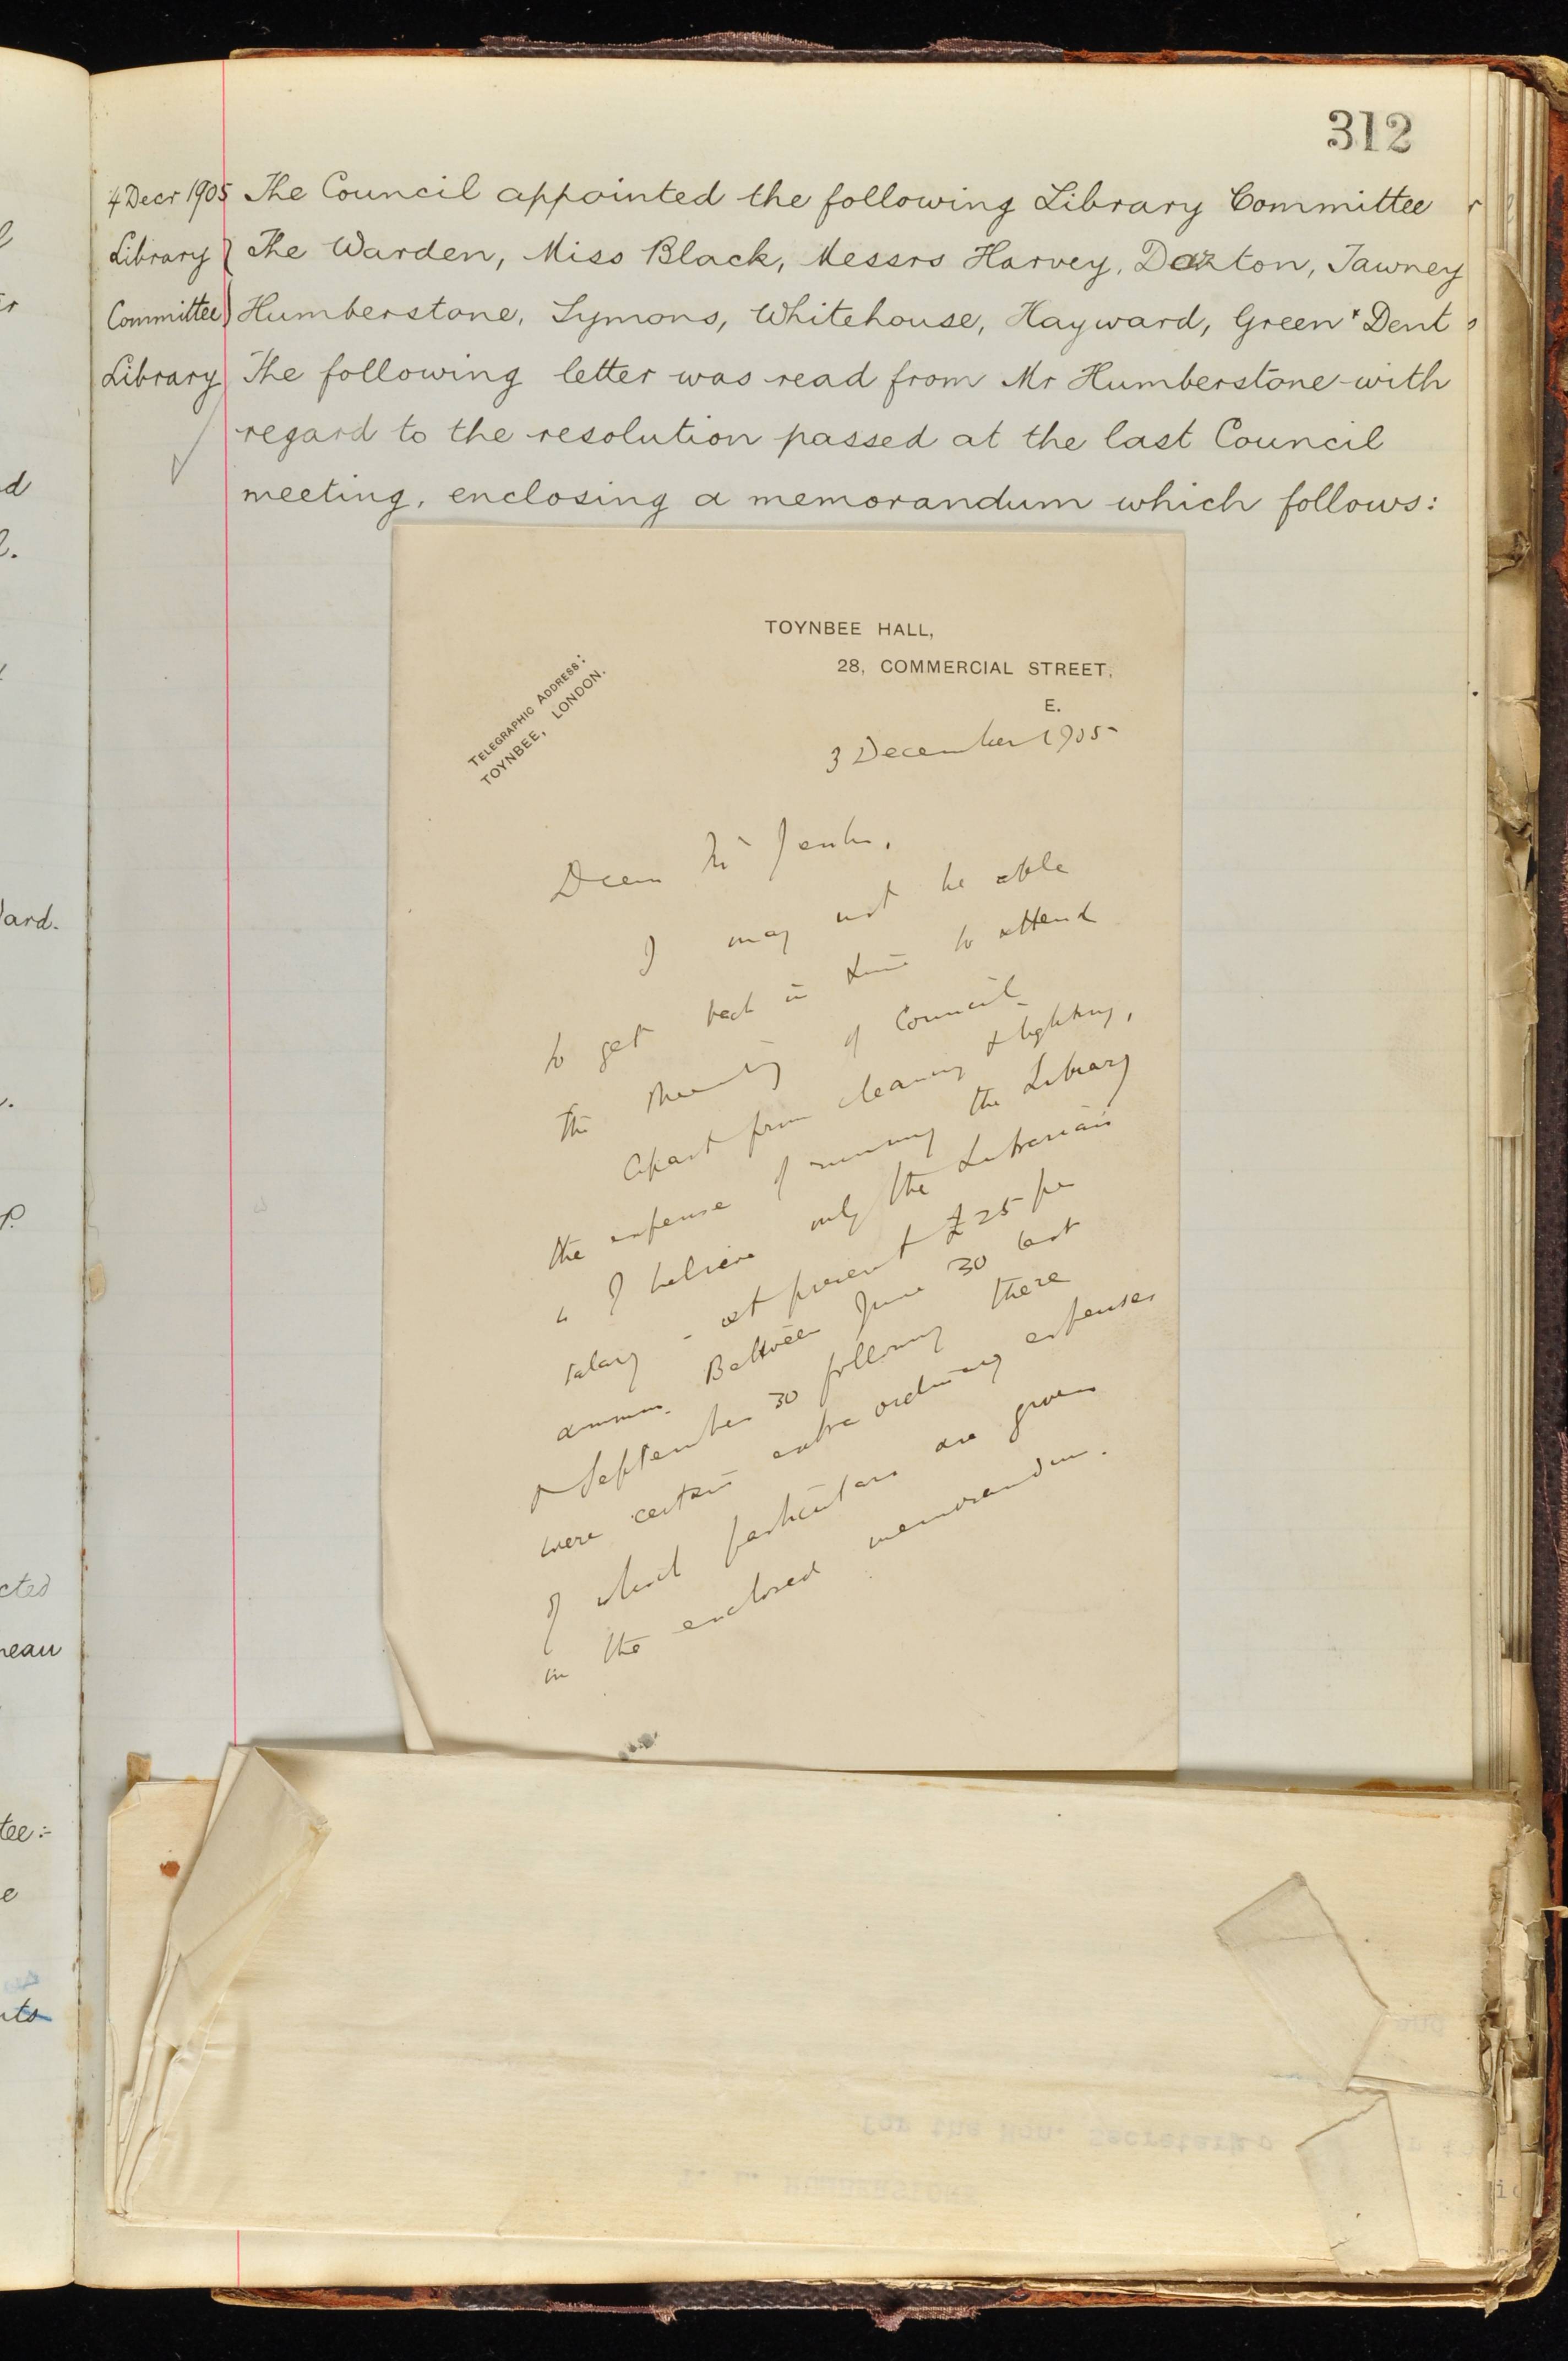 312
4 Decr 1905 The Council appointed the following Library Committee
Library The Warden, Miss Black, Messrs Harvey, Darton, Tawney
Committee Humberstone, Symons, Whitehouse, Hayward, Green & Dent
Library The following letter was read from Mr Humberstone with
regard to the resolution passed at the last Council
meeting, enclosing a memorandum which follows:
TOYNBEE HALL,
28, COMMERCIAL STREET,
E.
TELEGRAPHIC ADDRESS:
TOYNBEE, LONDON.
3 December 1905
Dear Mr Jenks,
I may not be able
to get back in time to attend
the meeting of Council
Apart from cleaning & lighting,
the expense of running the Library
is I believe only the Librarian's
salary - at present £25 per
annum. Between June 30 last
& September 30 following there
were certain extra ordinary expenses
of which particulars are given
in the enclosed memorandum.
ard.
cted
eau
tee:-
for the Hon. Secretary